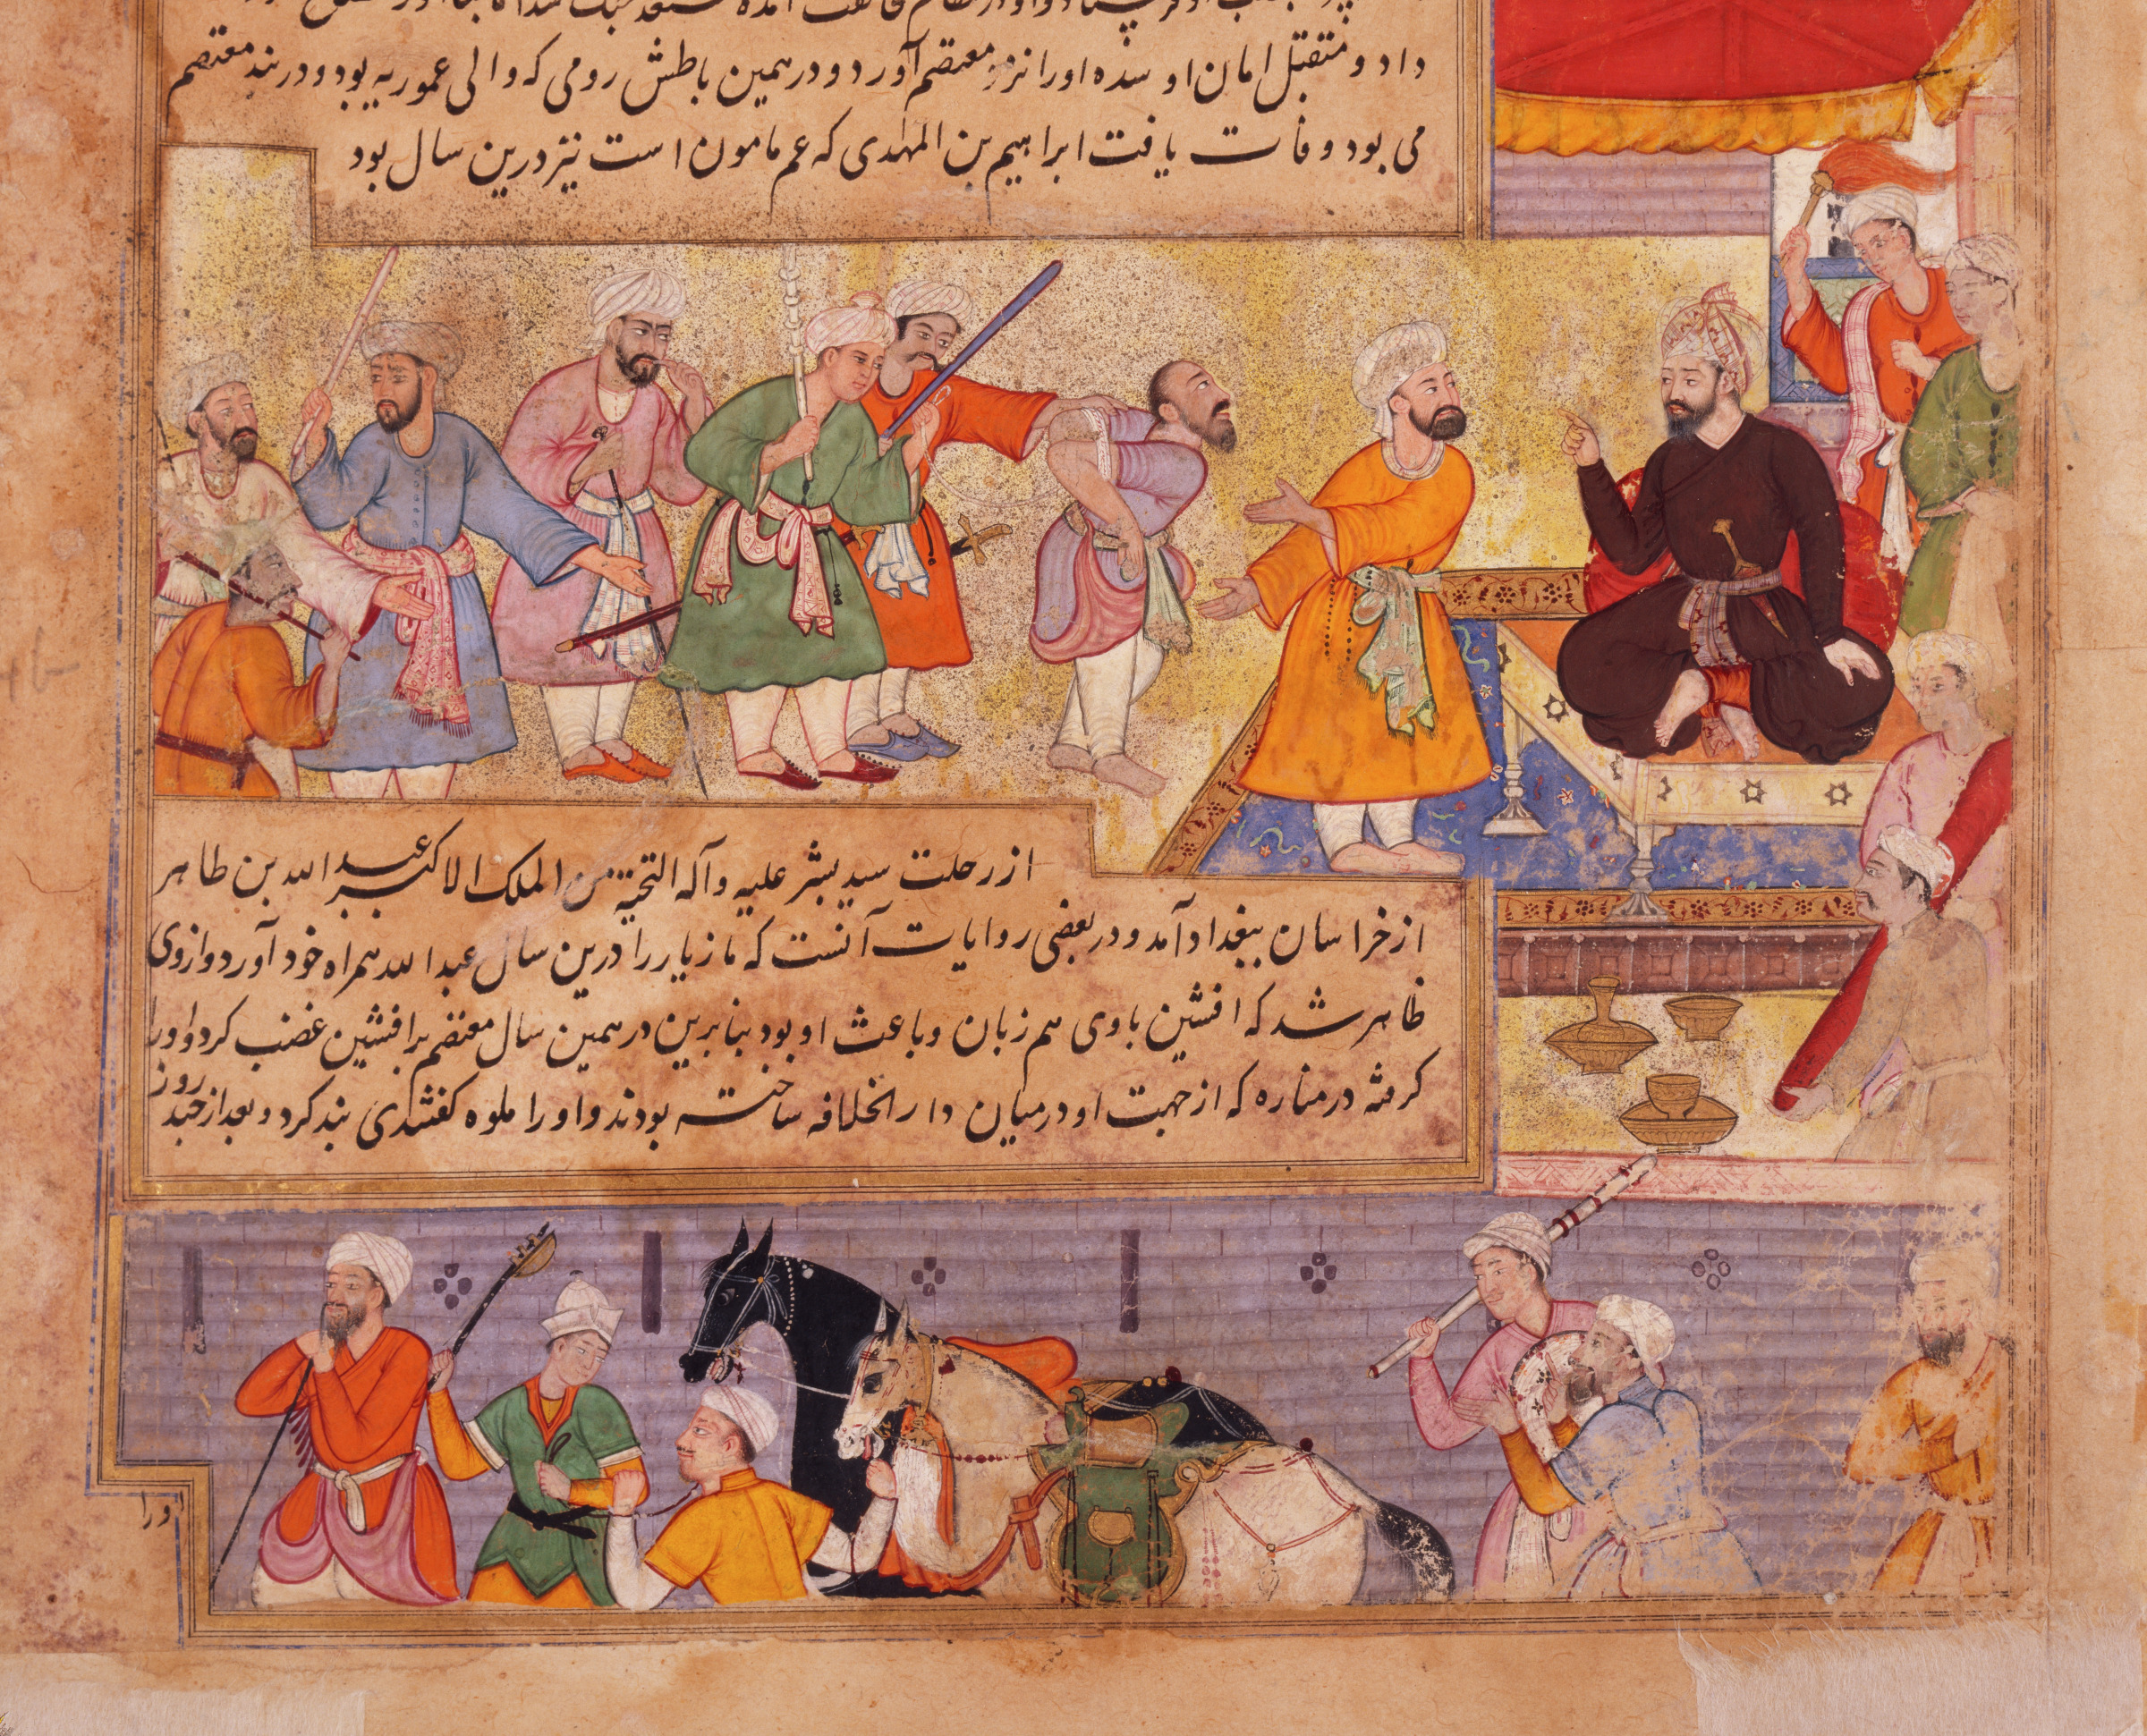 داد و متقبل امان او شده او را نزد معتصم آورد و در همین باطش رومی که والی عموریه بود و در بند معتصم
می بود وفات یافت ابراهیم بن المهدی که عم مامون است نیز درین سال بود
از رحلت سید بشر علیه و آله التحیة من الملک الاکبر عبد الله بن طاهر
از خراسان ببغداد آمد و در بعضی روایات آنست که مازیار را درین سال عبد الله همراه خود آورد و از وی
ظاهر شد که افشین با وی هم زبان و باعث او بود بنابرین در همین سال معتصم بر افشین غضب کرد و او را
گرفته در مناره که از جهت او در میان دار الخلافه ساخته بودند و او را بند کرد و بعد از چند روز
او را